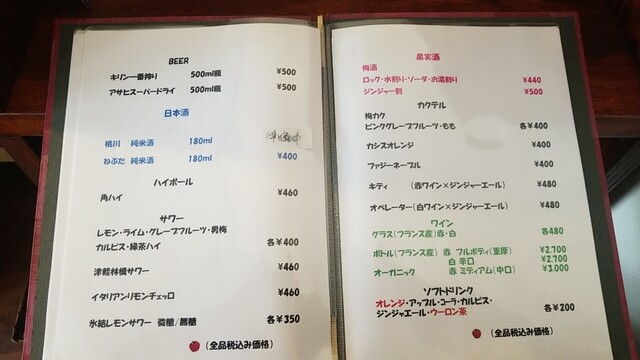 BEER
キリン一番搾り 500ml瓶 ¥500
アサヒスーパードライ 500ml瓶 ¥500
日本酒
桃川 純米酒 180ml
ねぶた 純米酒 180ml ¥400
ハイボール
角ハイ ¥460
サワー
レモン・ライム・グレープフルーツ・男梅
カルピス・緑茶ハイ 各¥400
津軽林檎サワー ¥460
イタリアンリモンチェッロ ¥460
氷結レモンサワー 微糖/無糖 各¥350
(全品税込み価格)
果実酒
梅酒
ロック・水割り・ソーダ・お湯割り ¥440
ジンジャー割 ¥500
カクテル
梅カク
ピンクグレープフルーツ・もも 各¥400
カシスオレンジ ¥400
ファジーネーブル ¥400
キティ (赤ワイン×ジンジャーエール) ¥480
オペレーター(白ワイン×ジンジャーエール) ¥480
ワイン
グラス(フランス産)赤・白 各480
ボトル(フランス産) 赤 フルボディ(重厚) ¥2,700
白 辛口 ¥2,700
オーガニック 赤 ミディアム(中口) ¥3,000
ソフトドリンク
オレンジ・アップル・コーラ・カルピス・
ジンジャエール・ウーロン茶 各¥200
(全品税込み価格)